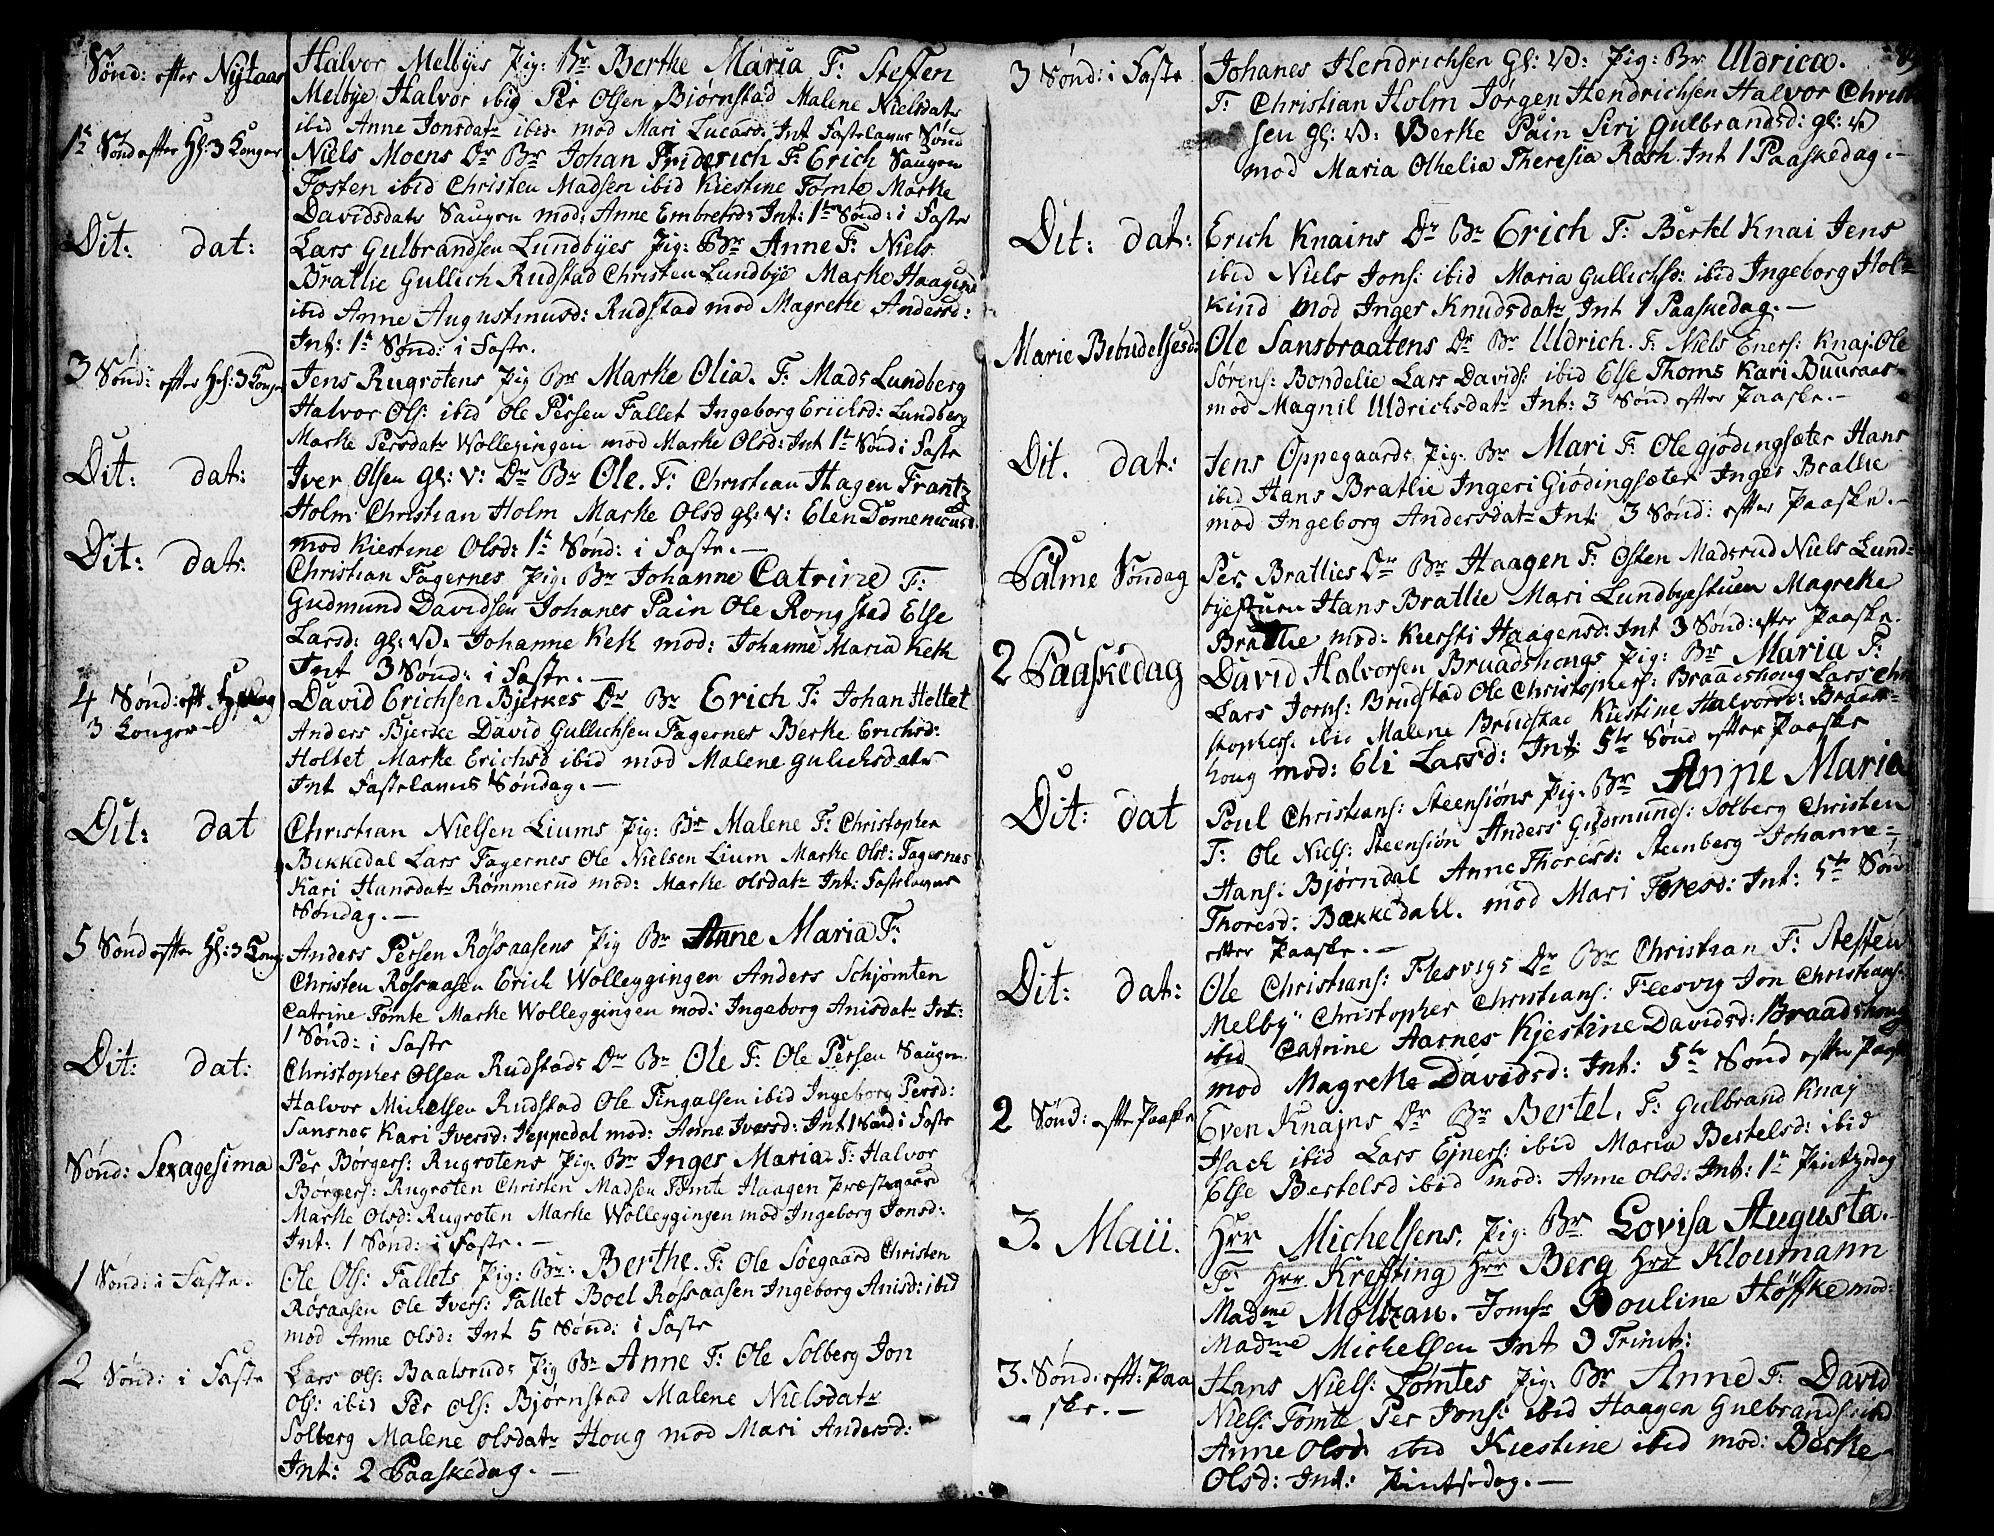 Sønd: efter Nytaar
Halvor Melbyes Pig: Br Berthe Maria F: Steffen
Melbye Halvor ibid Per Olsen Biørnstad Malene Nielsdatr
ibid Anne Jonsdatr ibid. mod Mari Lucasd: Int Fastelavns Sønd
1te Sønd efter Hl: 3 Konger
Niels Moens Dr Br Johan Friderich F: Erich Saugen
Tosten ibid Christen Madsen ibid Kiestine Tømte Marthe
Davidsdatr Saugen mod: Anne Embretsd: Int: 1te Sønd: i Faste
Dit: dat:
Lars Gulbrandsen Lundbyes Pig: Br Anne F: Niels
Bratlie Gullich Rudstad Christen Lundbye Marthe Haagensd
ibid Anne Augustinusd: Rudstad mod Magrethe Andersd:
Int: 1te Sønd: i Faste.
3 Sønd: efter Hel: 3 Konger
Jens Rugrotens Pig Br Marthe Olia. F: Mads Lundberg
Halvor Ols: ibid Ole Persen Fallet Ingeborg Erichsd: Lundberg
Marthe Persdatr Wollegingen mod Marthe Olsd: Int 1te Sønd i Faste
Dit: dat:
Iver Olsen Gl: V: Dr Br Ole. F: Christian Hagen Frantz
Holm Christian Holm Marthe Olsd gl: V: Elen Domenicusd:
mod Kiestine Olsd: 1te Sønd: i Faste.—
Dit: dat:
Christian Fagernes Pig: Br Johanne Catrine F:
Gudmund Davidsen Johanes Pain Ole Rongstad Else
Larsd: gl: VD: Johanne Kek mod: Johanne Maria Kek
Int 3 Sønd: i Faste.—
4 Sønd: eft
3 Konger—
David Erichsen Bjerkes Dr Br Erich F: Johan Holtet
Anders Bjerke David Gullichsen Fagernes Berthe Erichsd:
Holtet Marthe Erichsd ibid mod Malene Gulichsdatr
Int Fastelavns Søndag.—
Dit: dat
Christian Nielsen Liums Pig: Br Malene F: Christopher
Bekkedal Lars Fagernes Ole Nielsen Lium Marthe Olsd: Fagernes
Kari Hansdatr Rømmerud mod: Marthe Olsdatr Int: Fastelavns
Søndag.—
5 Sønd efter Hl: 3 Kong:
Anders Persen Røssaasens Pig Br Anne Maria F:
Christen Røssaasen Erich Wolleggingen Anders Schjømten
Catrine Tømte Marthe Wolleggingen mod: Ingeborg Anisdatr Int:
1 Sønd: i Faste
Dit: dat:
Christopher Olsen Rudstads Dr Br Ole F: Ole Persen Saugen
Halvor Michelsen Rudstad Ole Tingalsen ibid Ingeborg Persd:
Sansnes Kari Iversd: Jeppedal mod: Anne Iversd: Int 1 Sønd i Faste
Sønd: Sexagesima
Per Børgers: Rugrotens Pig: Br Inger Maria F: Halvor
Børgers: Rugroten Christen Madsen Tømte Haagen Præstegaard
Marthe Olsd: Rugroten Marthe Wolleggingen mod Ingeborg Jonsd:
Int: 1 Sønd: i Faste.—
1 Sønd: i Faste.
Ole Ols: Fallets Pig: Br: Berthe. F: Ole Søegaard Christen
Røsaasen Ole Ivers: Fallet Boel Røssaasen Ingeborg Anisd: ibid
mod Anne Olsd: Int 5 Sønd: i Faste
2 Sønd: i Faste
Lars Ols: Baalsruds Pig Br Anne F: Ole Solberg Jon
Ols: ibid Per Ols: Bjørnstad Malene Nielsdatr
Solberg Malene Olsdatr Houg mod Mari Andersd:
Int: 2 Paaskedag.—
3 Sønd: i Faste
Johanes Hendrichsen Gl: VD: Pig: Br Uldrica.
F: Christian Holm Jørgen Hendrichsen Halvor Christ
sen gl: VD: Berthe Pain Siri Gulbrandsd: gl: V
mod Maria Othelia Theresia Rash Int 1 Paaskedag.—
Dit: dat:
Erich Knains Dr Br Erich F: Bertel Knai Jens
ibid Niels Jons: ibid Maria Gullichsd: ibid Ingeborg Holt
kind mod Inger Knudsdatr Int 1 Paaskedag.—
Marie Bebudelsesd:
Ole Sansbraatens Dr Br Uldrich. F: Niels Eners: Knaj Ole
Sørens: Bondelie Lars Davids: ibid Else Thoms Kari Buuraas
mod Magnil Uldrichsdatr Int: 3 Sønd efter Paaske.—
Dit. dat:
Jens Oppegaards Pig: Br Mari F: Ole Gjødingsæter Hans
ibid Hans Bratlie Ingeri Giødingsæter Inger Bratlie
mod Ingeborg Andersdatr Int: 3 Sønd: efter Paaske.—
Palme Søndag
Per Bratlies Dr Br Haagen F: Osten Madsrud Niels Lund=
byestuen Hans Bratlie Mari Lundbyestuen Magrethe
Bratlie mod: Kiersti Haagensd: Int 3 Sønd: efter Paaske.
2 Paaskedag
David Halvorsen Braadshougs Pig: Br Maria F:
Lars Jorns: Brudstad Ole Christophers: Braadshoug Lars Chri
stophers: ibid Malene Brudstad Kiestine Halvorsd: Braads
houg mod: Eli Larsd: Int: 5te Sønd efter Paaske
Dit: dat
Poul Christians: Steensiøns Pig: Br Anne Maria
F: Ole Niels: Steensiøn Anders Gudmunds: Solberg Christen
Hans: Bjørndal Anne Thoresd: Steenberg Johanne
Thoresd: Bækkedahl. mod Mari Toresd: Int: 5te Sønd:
efter Paaske.—
Dit: dat:
Ole Christians: Flesvigs Dr Br Christian F: Steffen
Melby Christopher Christians: Flesvig Jon Christians:
ibid Catrine Aarnes Kjestine Davidsd: Braadshoug
mod Magrethe Davidsd: Int: 5te Sønd efter Paaske
2 Sønd: efter Paaske
Even Knajns Dr Br Bertel. F: Gulbrand Knaj
Isach ibid Lars Ejners: ibid Maria Bertelsd: ibid
Else Bertelsd ibid mod: Anne Olsd: Int: 1te Pintzedag
3. Maii.
Hrr Michelsens. Pig: Br Lovisa Augusta.
F: Hrr Krefting Hrr Berg Hrr Kloumann
Madme Moltzau. Jomfr Pouline Høfske mod:
Madme Michelsen Int 3 Trinit:
3. Sønd: eft: Paa
ske.—
Hans Niels: Tømtes Pig: Br Anne F: David
Niels: Tomte Per Jons: ibid Haagen Gulbrands: ibid
Anne Olsd: ibid Kiestine ibid mod: Berthe
Olsd: Int: Pintsedag.—